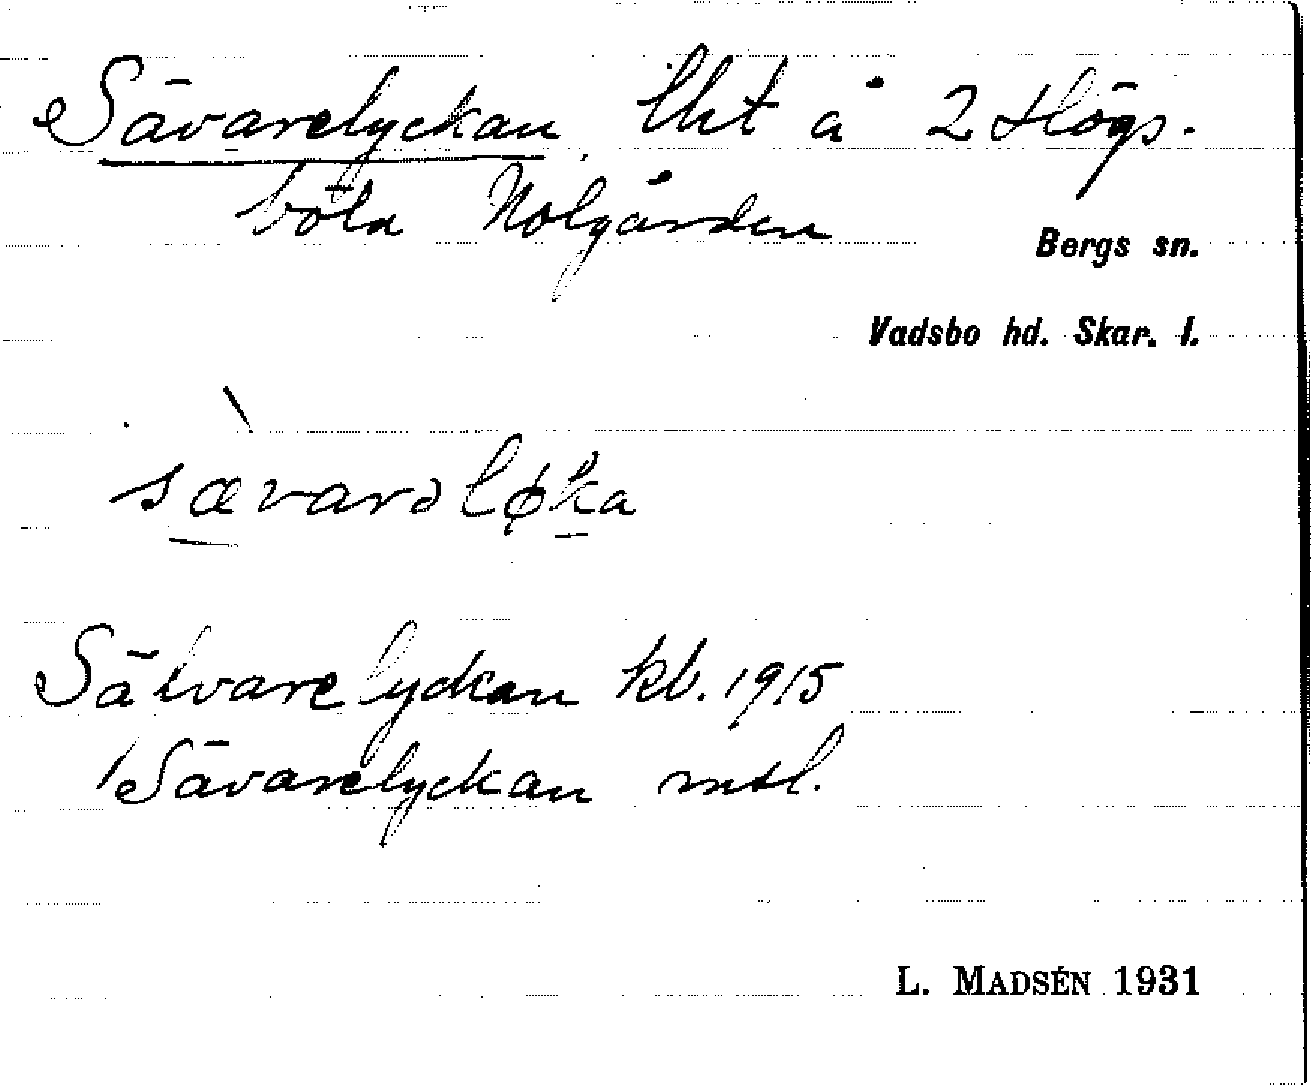 Sävarelyckan, lht å 2 Högs-
böla Nolgården
Bergs sn.
Vadsbo hd. Skar. l.
sævarəløka
Sätvarelyckan kb. 1915
Sävarelyckan mtl.
L. MADSÉN 1931